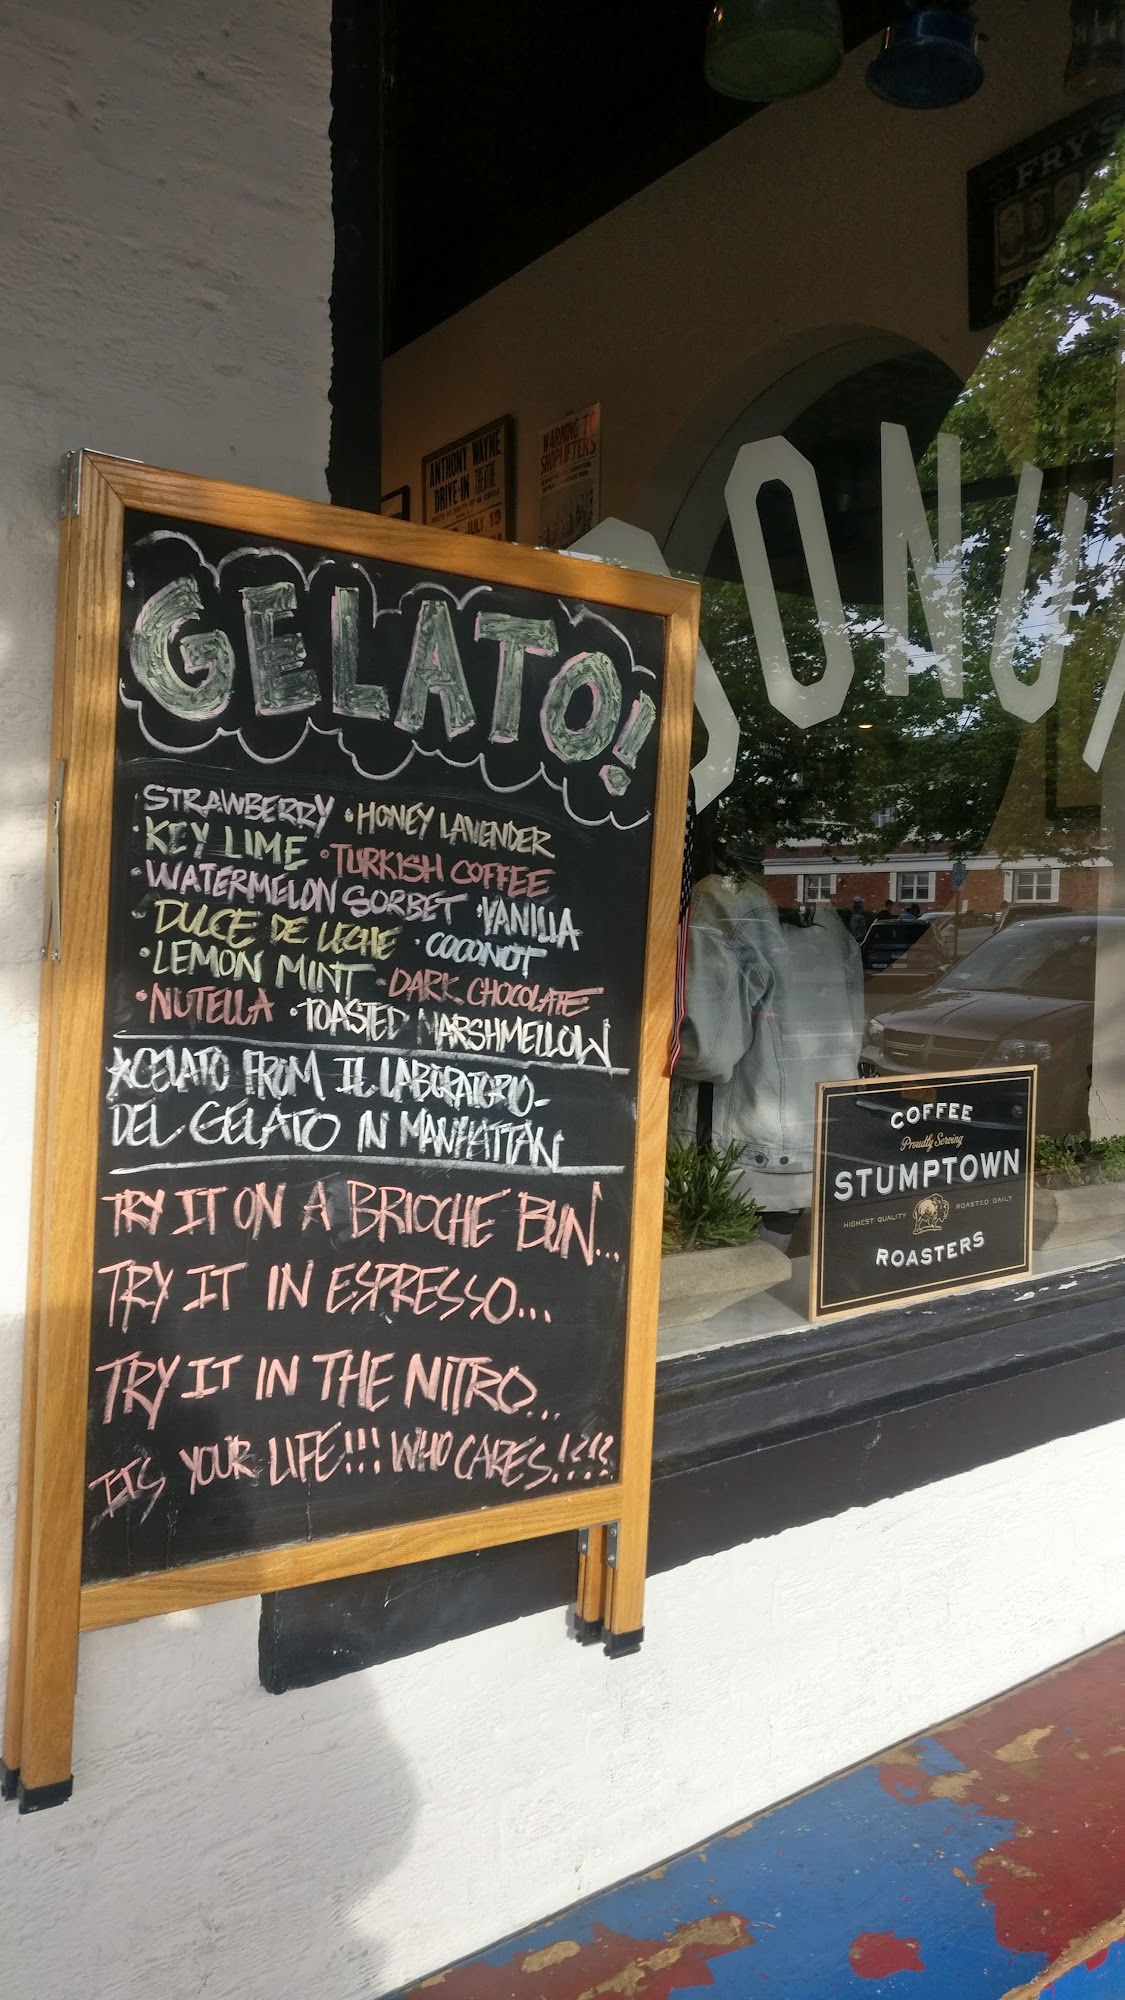 GELATO!
STRAWBERRY • HONEY LAVENDER
• KEY LIME • TURKISH COFFEE
• WATERMELON SORBET • VANILLA
• DULCE DE LECHE • COCONUT
• LEMON MINT • DARK CHOCOLATE
• NUTELLA • TOASTED MARSHMELLOW
*GELATO FROM IL LABORATORIO-
DEL GELATO IN MANHATTAN
TRY IT ON A BRIOCHE BUN...
TRY IT IN ESPRESSO...
TRY IT IN THE NITRO...
ITS YOUR LIFE!!! WHO CARES!?!?
ANTHONY WAYNE
DRIVE-IN THEATRE
JULY 19
WARNING TO
SHOPLIFTERS
FRY'S
DONU
COFFEE
Proudly Serving
STUMPTOWN
HIGHEST QUALITY ROASTED DAILY
ROASTERS